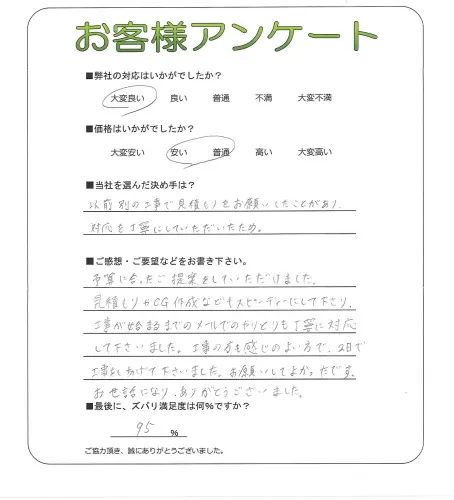 お客様アンケート
■弊社の対応はいかがでしたか？
大変良い 良い 普通 不満 大変不満
■価格はいかがでしたか？
大変安い 安い 普通 高い 大変高い
■当社を選んだ決め手は？
以前別の工事で見積もりをお願いしたことがあり
対応を丁寧にしていただいたため。
■ご感想・ご要望などをお書き下さい。
予算に合ったご提案をしていただけました。
見積もりやCG作成などもスピーディーにして下さり、
工事が始まるまでのメールでのやりとりも丁寧に対応
して下さいました。工事の方も感じのよい方で、2日で
工事をしあげて下さいました。お願いしてよかったです。
お世話になり、ありがとうございました。
■最後に、ズバリ満足度は何%ですか？
95 %
ご協力頂き、誠にありがとうございました。